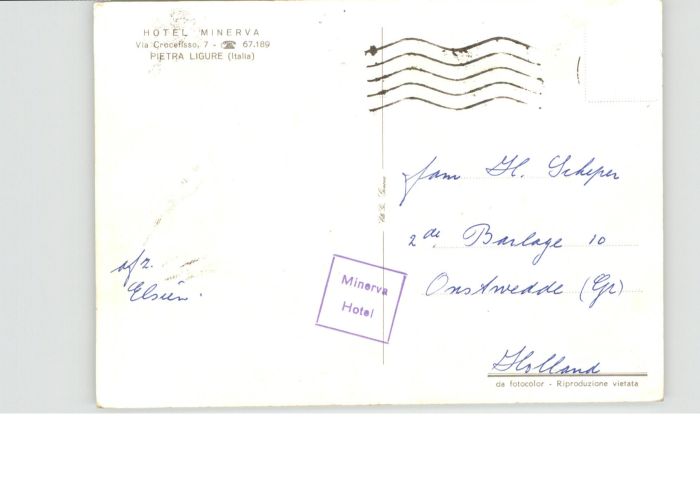 HOTEL MINERVA
Via Crocefisso, 7 - ☎ 67.189
PIETRA LIGURE (Italia)
fam H. Scheper
2de Barlage 10
Onstwedde (Gr)
Holland
afz.
Elsiën.
Minerva
Hotel
da fotocolor - Riproduzione vietata